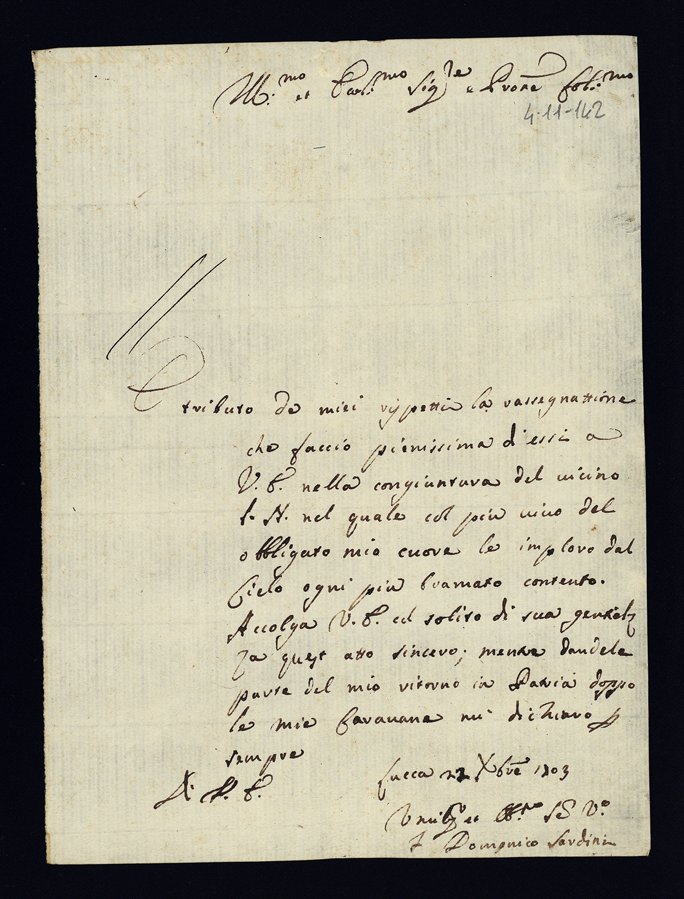 Ill.mo et Ecc.mo Sig.re e Prone Col.mo
4-11-142
È tributo de miei rispetti la rassegnattione
che faccio pienissima d'essi a
V. E. nella congiuntura del vicino
S. N. nel quale col più vivo del
obbligato mio cuore le imploro dal
Cielo ogni più bramato contento.
Accolga V. E. col solito di sua gentilez
za quest atto sincero; mentre dandole
parte del mio ritorno in Patria doppo
le mie Caravane mi dichiaro p
sempre
Di V. E.
Lucca 22 Xbre 1703
F Domenico Sardini